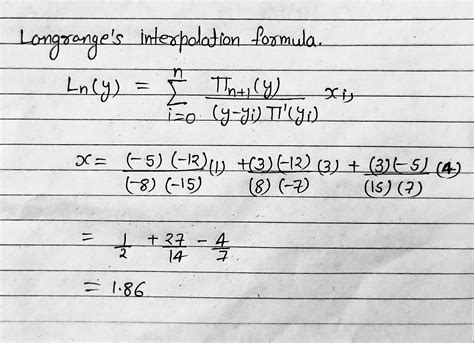 Langrange's interpolation formula.
Ln(y) = n∑i=0 Πn+1(y) / (y-yi) Π'(yi) xi,
x = (-5) (-12) / (-8) (-15) (1) + (3) (-12) / (8) (-7) (3) + (3) (-5) / (15) (7) (4)
= 1/2 + 27/14 - 4/7
= 1.86